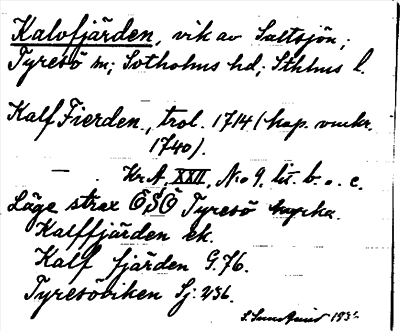 Kalvfjärden, vik av Saltsjön;
Tyresö sn; Sotholms hd; Sthlms l.
Kalf Fierden, trol. 1714 (kop. omkr.
1740).
— . Kr. A. XXII, No 9, lit. b. o. c.
Läge strax OSO Tyresö kyrka.
Kalffjärden ek.
Kalf fjärden G. 76.
Tyresöviken Sj. 236.